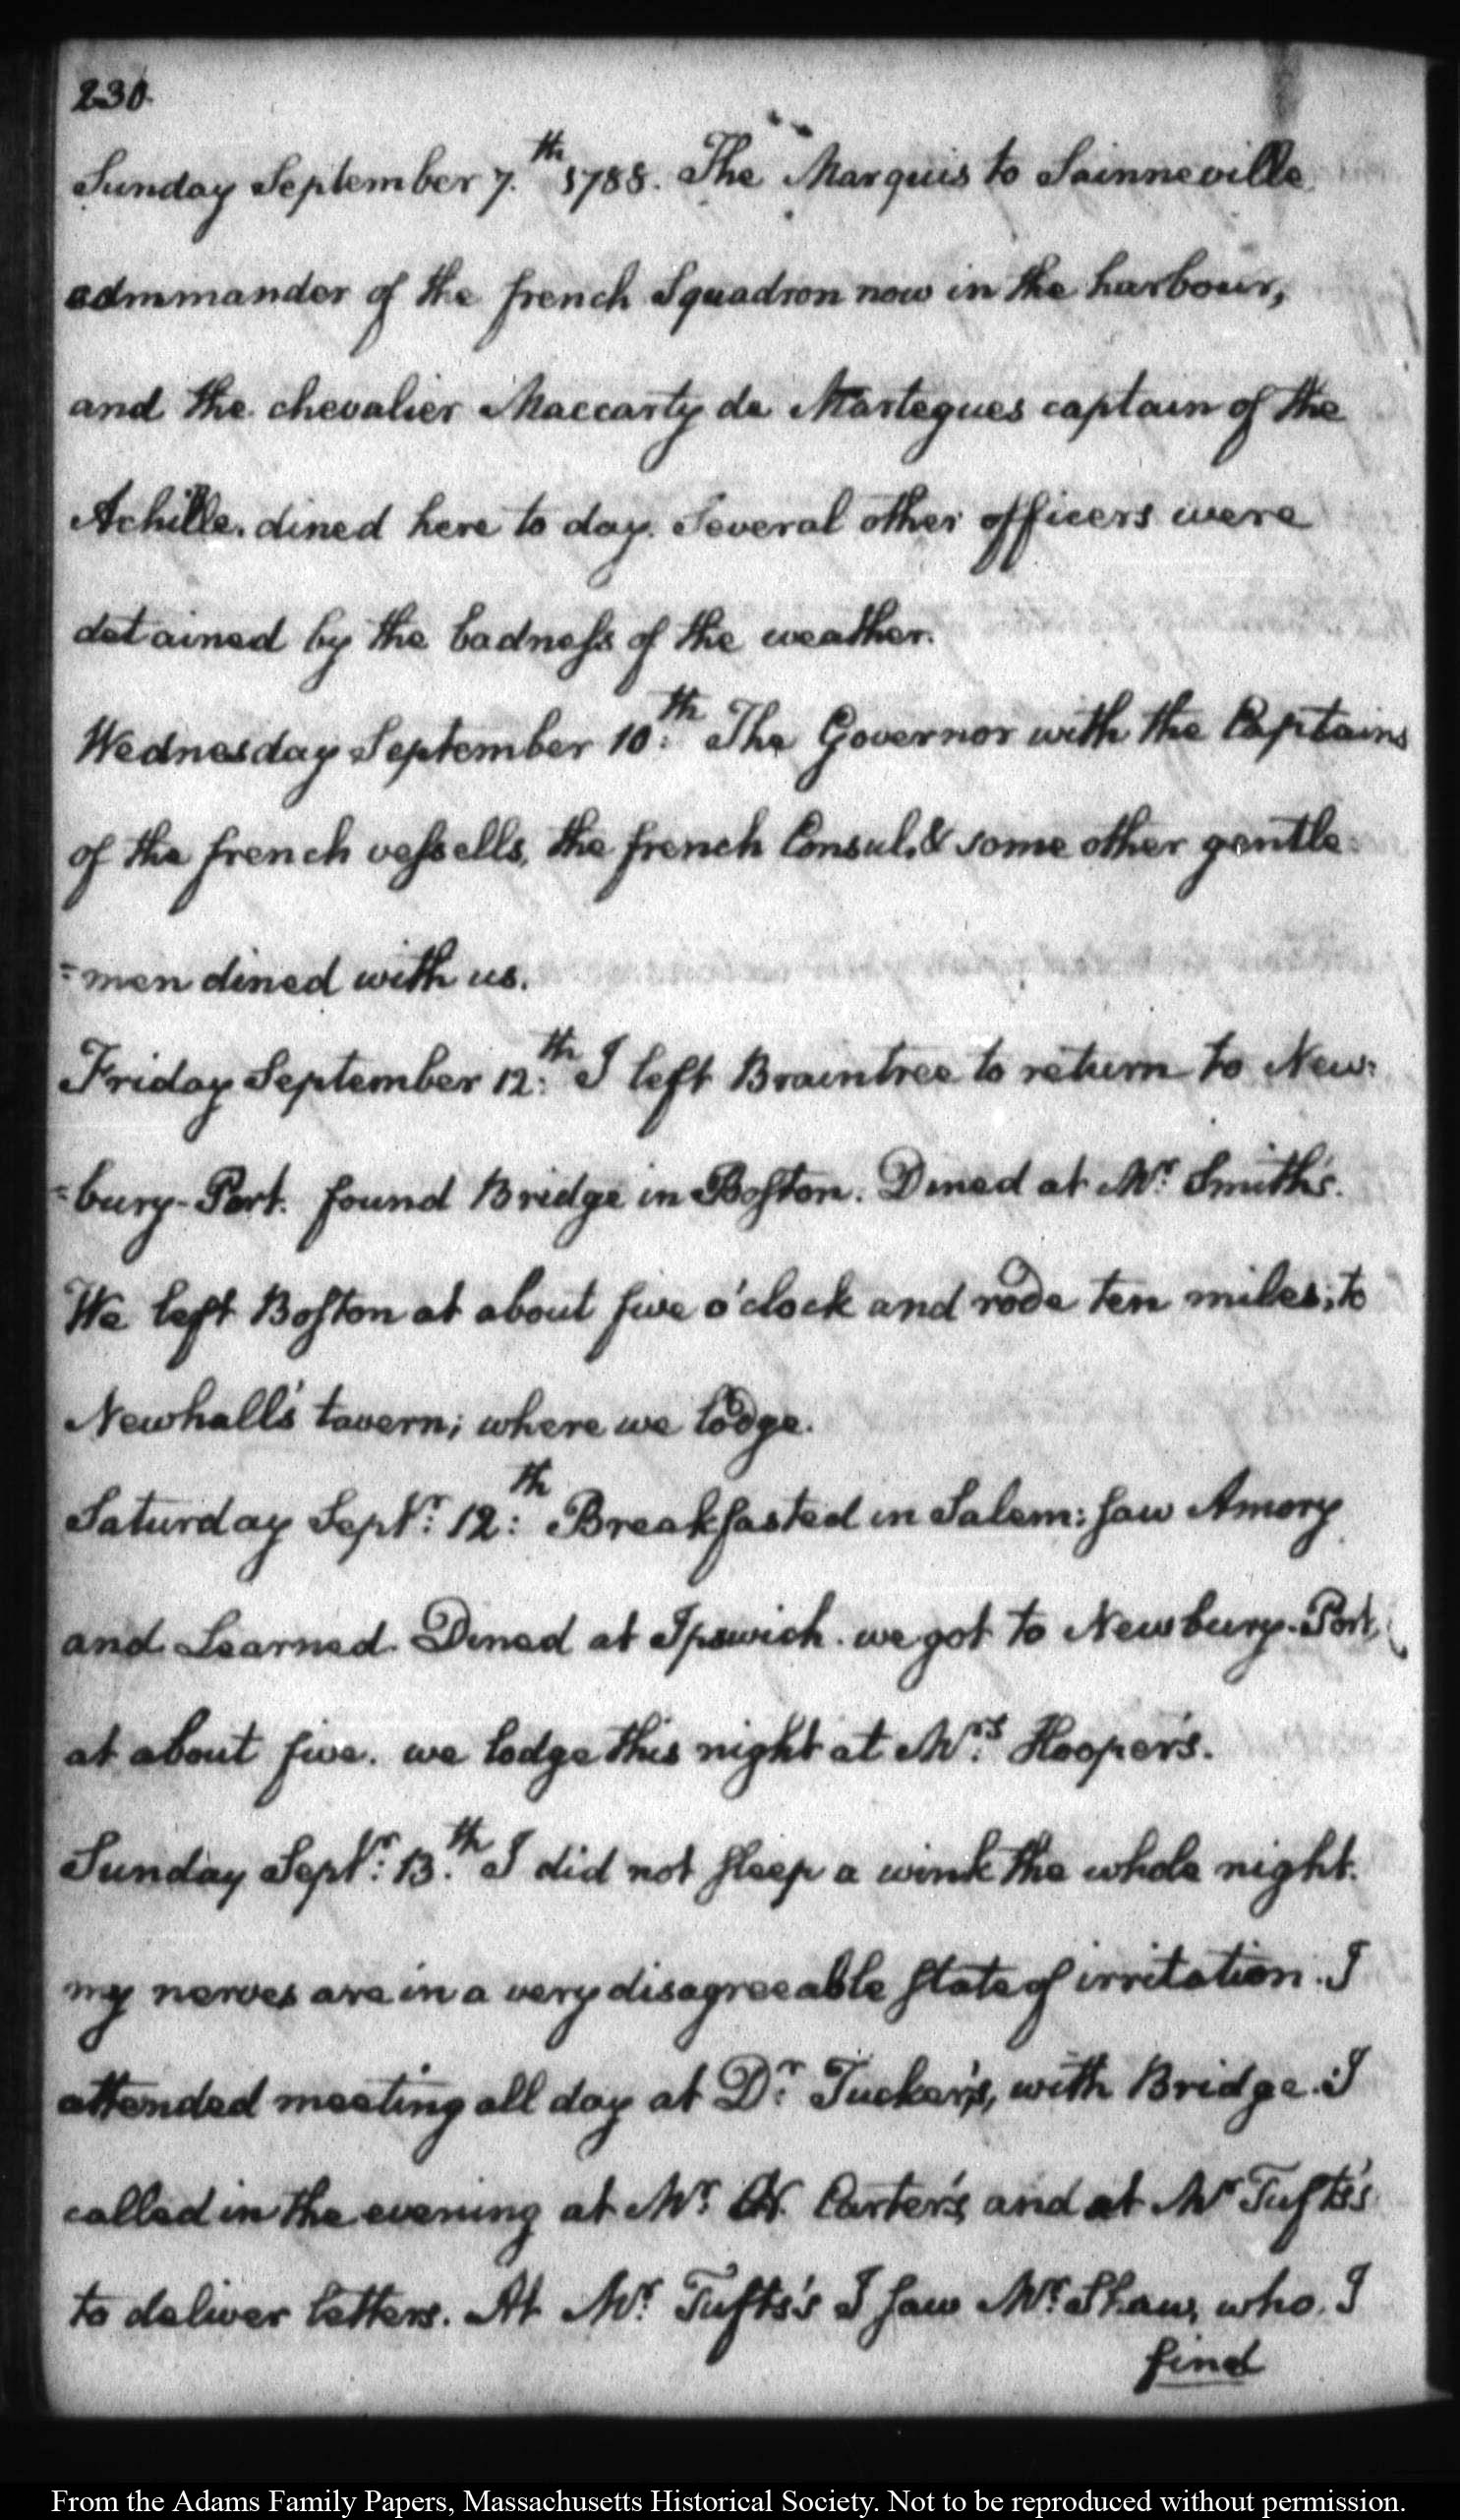 230.
Sunday September 7.th 1788. The Marquis to Sainneville
commander of the french Squadron now in the harbour,
and the chevalier Maccarty de Martegues captain of the
Achille, dined here to day. Several other officers were
detained by the badneſs of the weather.
Wednesday September 10:th The Governor with the Captains
of the french veſsells, the french Consul, & some other gentle
=men dined with us.
Friday September 12:th I left Braintree to return to New=
=bury-Port. found Bridge in Boſton. Dined at Mr. Smith's.
We left Boſton at about five o'clock and rode ten miles; to
Newhall's tavern; where we lodge.
Saturday Septr. 12:th Breakfasted in Salem: ſaw Amory
and Learned. Dined at Ipswich. we got to Newbury-Port,
at about five. we lodge this night at Mrs. Hooper's.
Sunday Septr. 13.th I did not ſleep a wink the whole night.
my nerves are in a very disagreeable ſtate of irritation. I
attended meeting all day at Dr. Tucker's, with Bridge. I
called in the evening at Mr. N. Carter's, and at Mr Tufts's
to deliver letters. At Mr. Tufts's I ſaw Mr. Shaw, who I
find
From the Adams Family Papers, Massachusetts Historical Society. Not to be reproduced without permission.